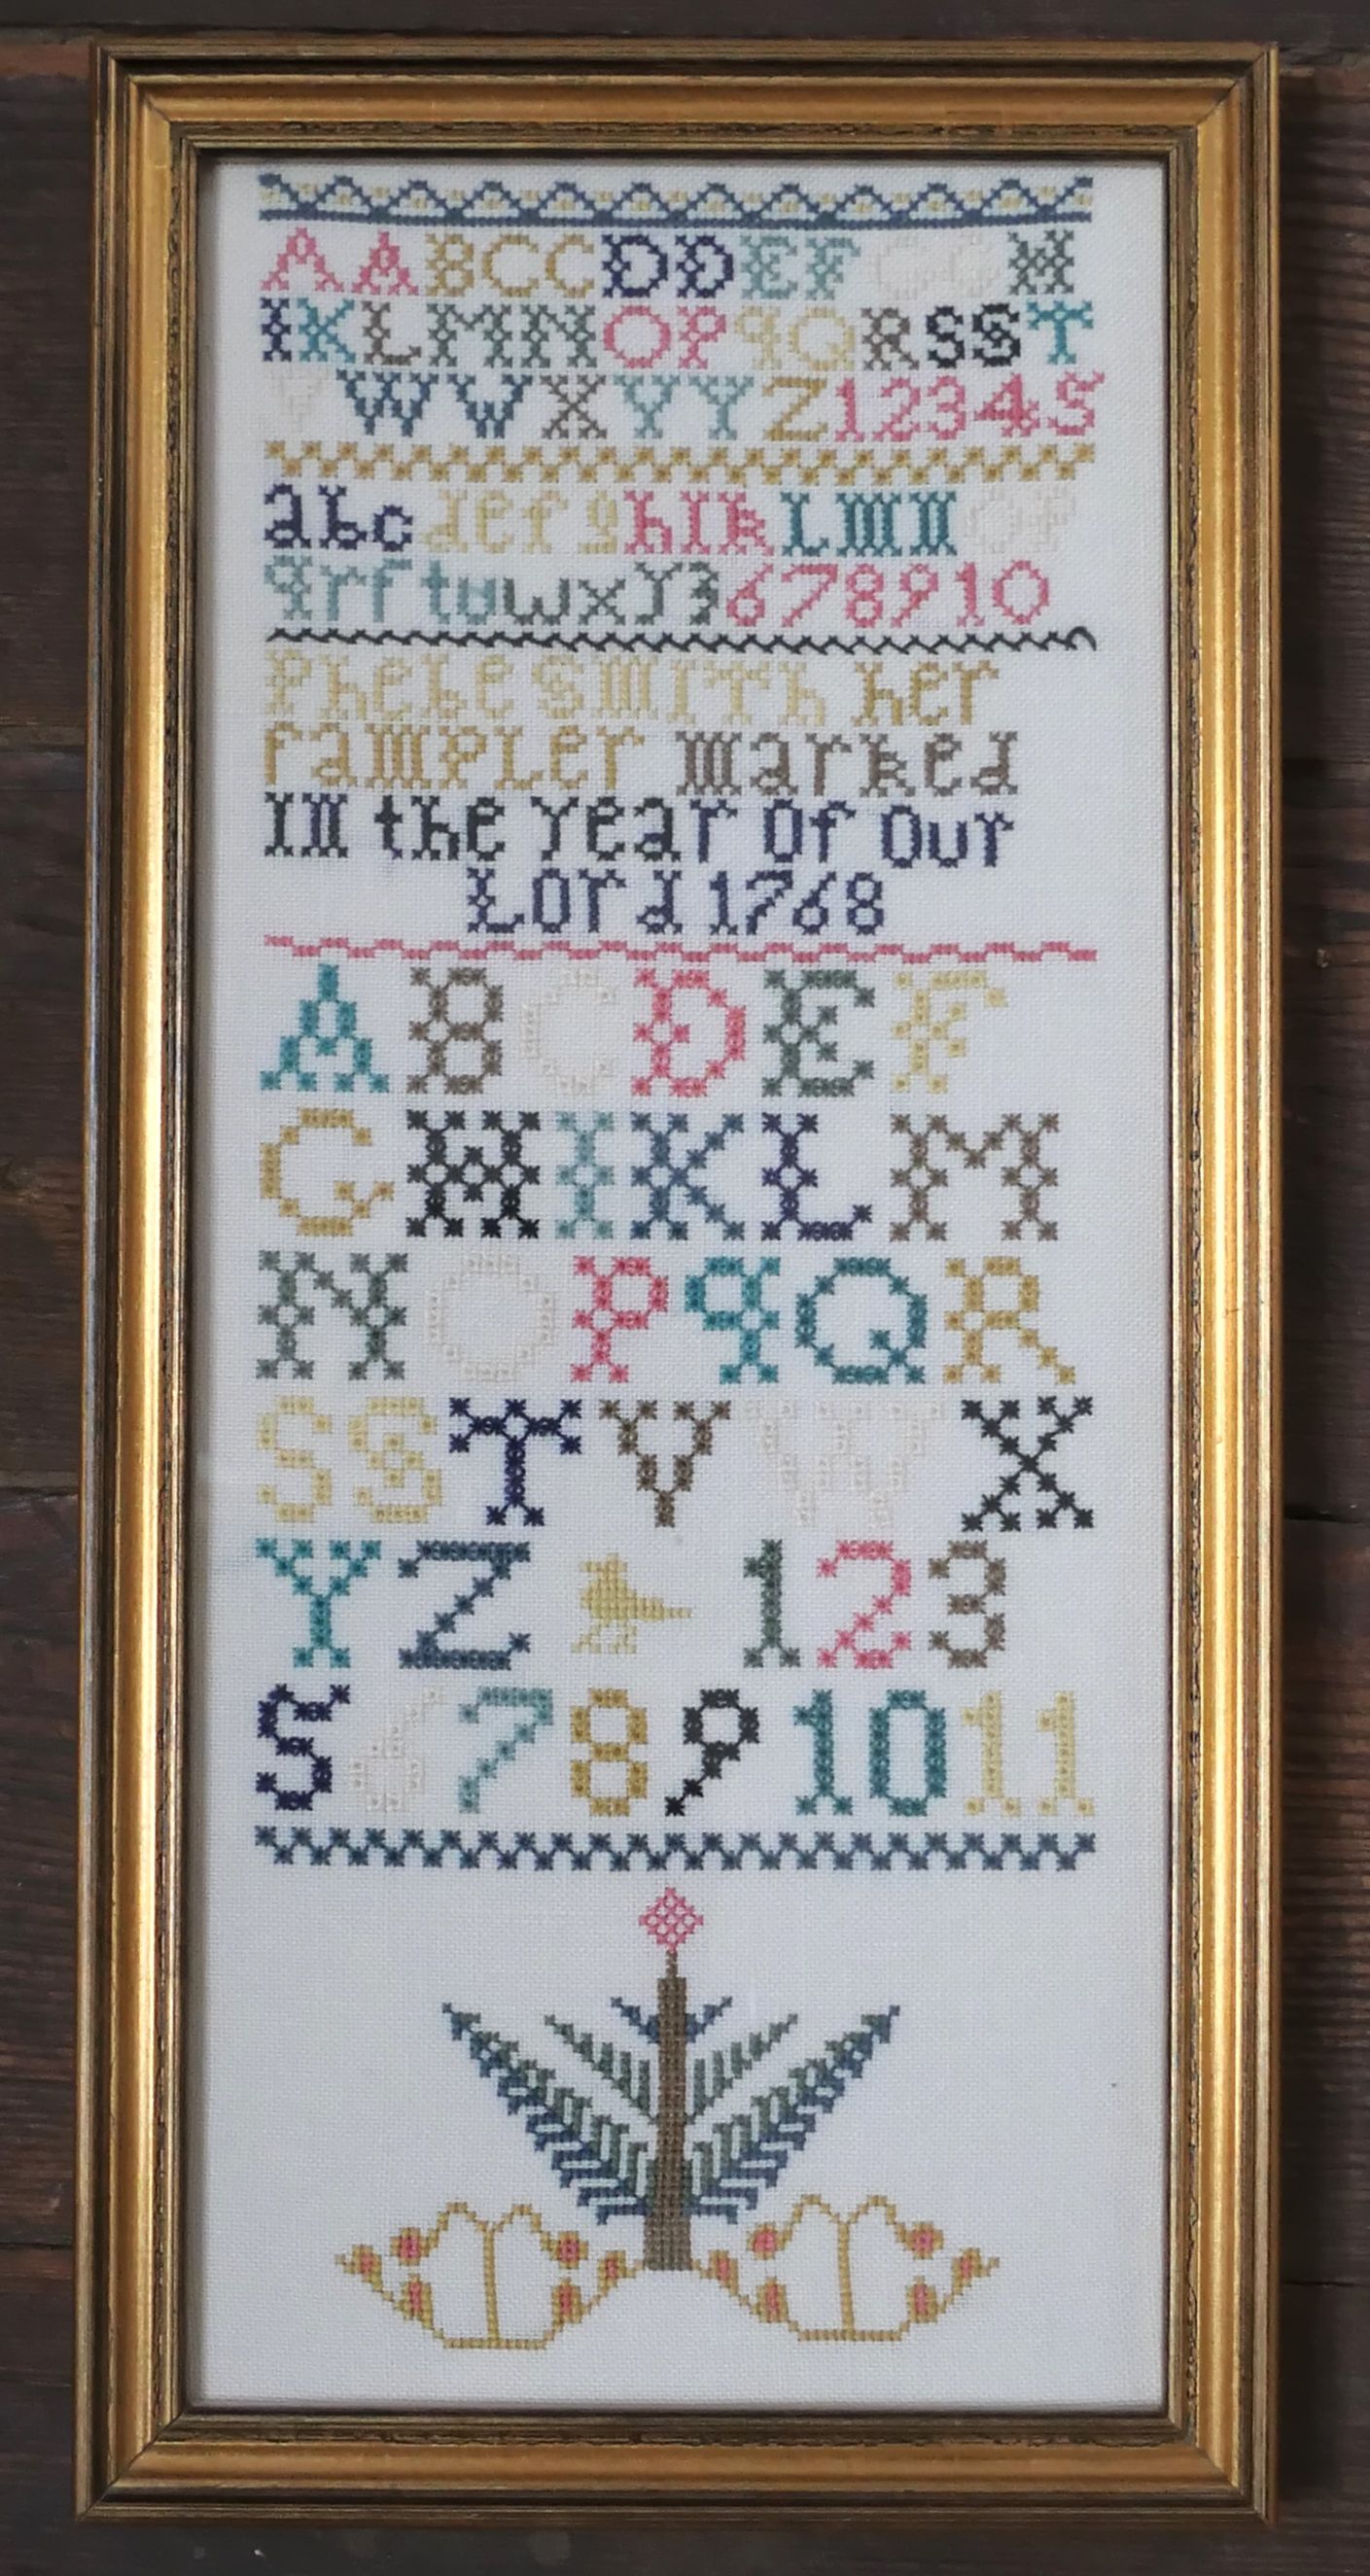 A A B C C D D E F G G H
I K L M N O P q Q R S S T
V W W X Y Y Z 1 2 3 4 5
a b c d e f g h I k L m n o p
q r ſ t u w x y z 6 7 8 9 10
Phebe Smith her
ſampler marked
In the Year Of Our
Lord 1768
A B C D E F
G H I K L M
N O P q Q R
S S T V W X
Y Z 1 2 3
5 6 7 8 9 10 11